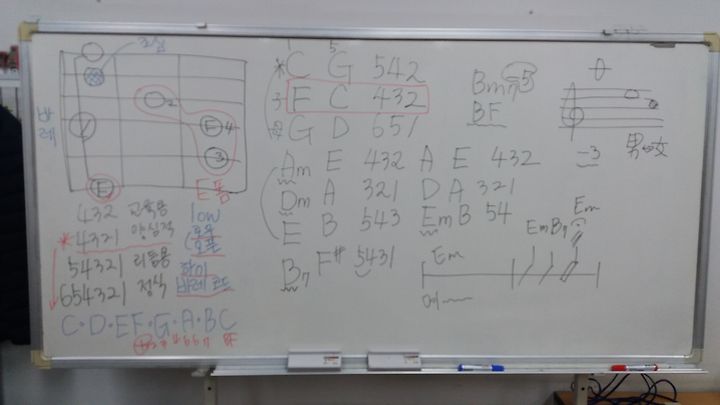 조심
바레
2
F 4
3
E
E폼
432 교육용 low
*4321 양심적
54321 리듬용 하이
654321 정식 바레코드
C·D·EF·G·A·BC
1 5
*C G 542
F C 432
G D 651
Am E 432 A E 432
Dm A 321 D A 321
E B 543 Em B 54
B7 F# 5431
Bm7-5
BF
男 女
-3
Em
Em B7
Em